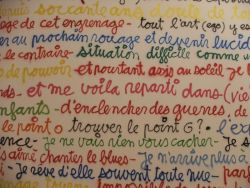 depuis soixante ans dont de t
ège de cet engrenage - tout l'art (ego) y es
er au prochain rouage et devenir lucid
le contraire - situation difficile comme u
de pouvoir - et pourtant assis au soleil je
nds - et me voilà reparti dans (vie
enfants - d'enclencher des guerres, de
le point O trouver le point G? - l'e
ence - je ne vais rien vous cacher - Je
is aimé chanter le blues - Je n'arrive plus a
Je rêve d'elle souvent toute nue -